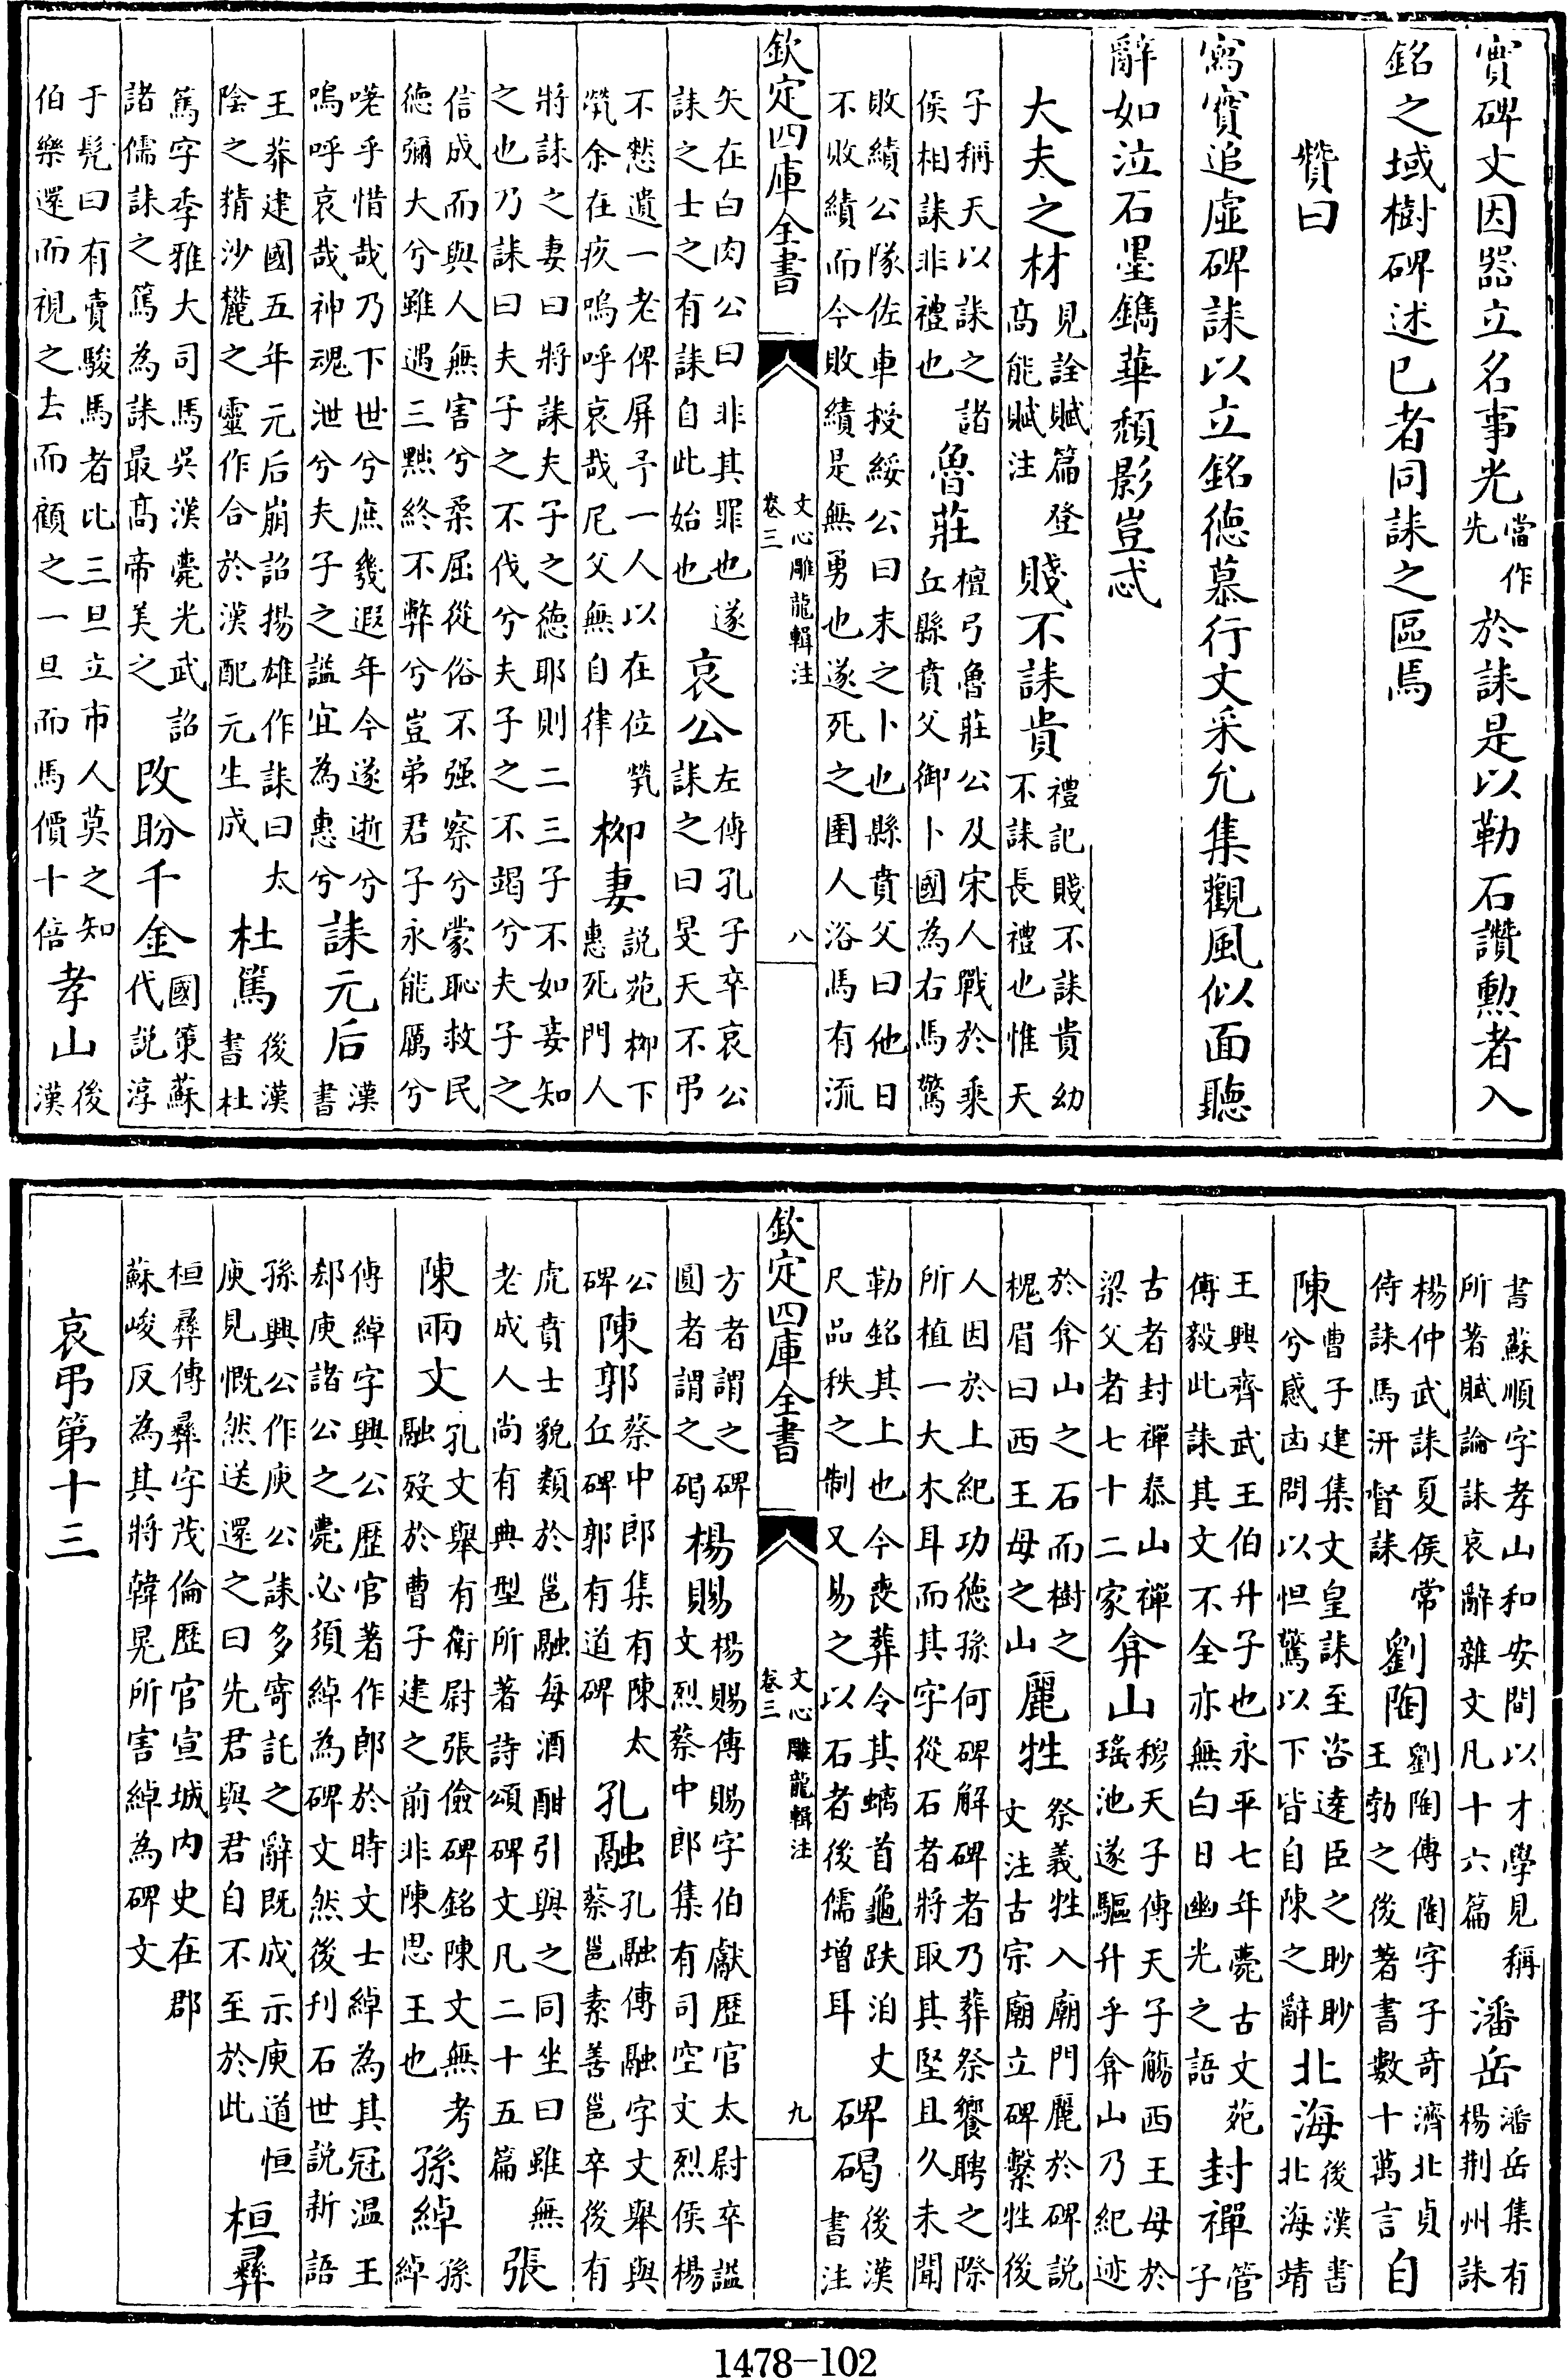 實碑文因器立名事光當作先於誄是以勒石讚勲者入
銘之域樹碑述已者同誄之區焉
贊曰
寫實追虛碑誄以立銘徳慕行文采允集觀風似面聽
辭如泣石墨鐫華頽影豈忒
大夫之材見詮賦篇登髙能賦注賤不誄貴禮記賤不誄貴幼不誄長禮也惟天
子稱天以誄之諸侯相誄非禮也魯莊檀弓魯莊公及宋人戰於乗丘縣賁父御卜國為右馬驚
敗績公隊佐車授綏公曰末之卜也縣賁父曰他日不敗績而今敗績是無勇也遂死之圉人浴馬有流
欽定四庫全書 文心雕龍輯注 卷三 八
矢在白肉公曰非其罪也遂誄之士之有誄自此始也哀公左傳孔子卒哀公誄之曰旻天不弔
不憖遺一老俾屏予一人以在位煢煢余在疚嗚呼哀哉尼父無自律柳妻説苑柳下惠死門人
將誄之妻曰將誄夫子之徳耶則二三子不如妾知之也乃誄曰夫子之不伐兮夫子之不竭兮夫子之
信成而與人無害兮柔屈從俗不强察兮蒙恥救民徳彌大兮雖遇三黜終不弊兮豈弟君子永能厲兮
嗟乎惜哉乃下世兮庶幾遐年今遂逝兮嗚呼哀哉神魂泄兮夫子之諡宜為惠兮誄元后漢書
王莽建國五年元后崩詔揚雄作誄曰太陰之精沙麓之靈作合於漢配元生成杜篤後漢書杜
篤字季雅大司馬吳漢薨光武詔諸儒誄之篤為誄最髙帝美之改盼千金國策蘇代説淳
于髠曰有賣駿馬者比三旦立市人莫之知伯樂還而視之去而顧之一旦而馬價十倍孝山後漢
書蘇順字孝山和安間以才學見稱所著賦論誄哀辭雜文凡十六篇潘岳潘岳集有楊荆州誄
楊仲武誄夏侯常侍誄馬汧督誄劉陶劉陶傳陶字子奇濟北貞王勃之後著書數十萬言自
陳曹子建集文皇誄至咨逺臣之眇眇兮感凶問以怛驚以下皆自陳之辭北海後漢書北海靖
王興齊武王伯升子也永平七年薨古文苑傅毅此誄其文不全亦無白日幽光之語封禪管子
古者封禪泰山禪梁父者七十二家弇山穆天子傳天子觴西王母於瑤池遂驅升乎弇山乃紀迹
於弇山之石而樹之槐眉曰西王母之山麗牲祭義牲入廟門麗於碑説文注古宗廟立碑繫牲後
人因於上紀功徳孫何碑解碑者乃葬祭饗聘之際所植一大木耳而其字從石者將取其堅且久未聞
勒銘其上也今喪葬令其螭首龜趺洎丈尺品秩之制又易之以石者後儒增耳碑碣後漢書注
欽定四庫全書 文心雕龍輯注 卷三 九
方者謂之碑圓者謂之碣楊賜楊賜傳賜字伯獻歴官太尉卒諡文烈蔡中郎集有司空文烈侯楊
公碑陳郭蔡中郎集有陳太丘碑郭有道碑孔融孔融傳融字文舉與蔡邕素善邕卒後有
虎賁士貌類於邕融每酒酣引與之同坐曰雖無老成人尚有典型所著詩頌碑文凡二十五篇張
陳兩文孔文舉有衛尉張儉碑銘陳文無考融歿於曹子建之前非陳思王也孫綽孫綽
傳綽字興公歴官著作郎於時文士綽為其冠温王郄庾諸公之薨必須綽為碑文然後刋石世説新語
孫興公作庾公誄多寄託之辭既成示庾道恒庾見慨然送還之曰先君與君自不至於此桓彞
桓彞傳彞字茂倫歴官宣城内史在郡蘇峻反為其將韓晃所害綽為碑文
哀弔第十三
1478—102